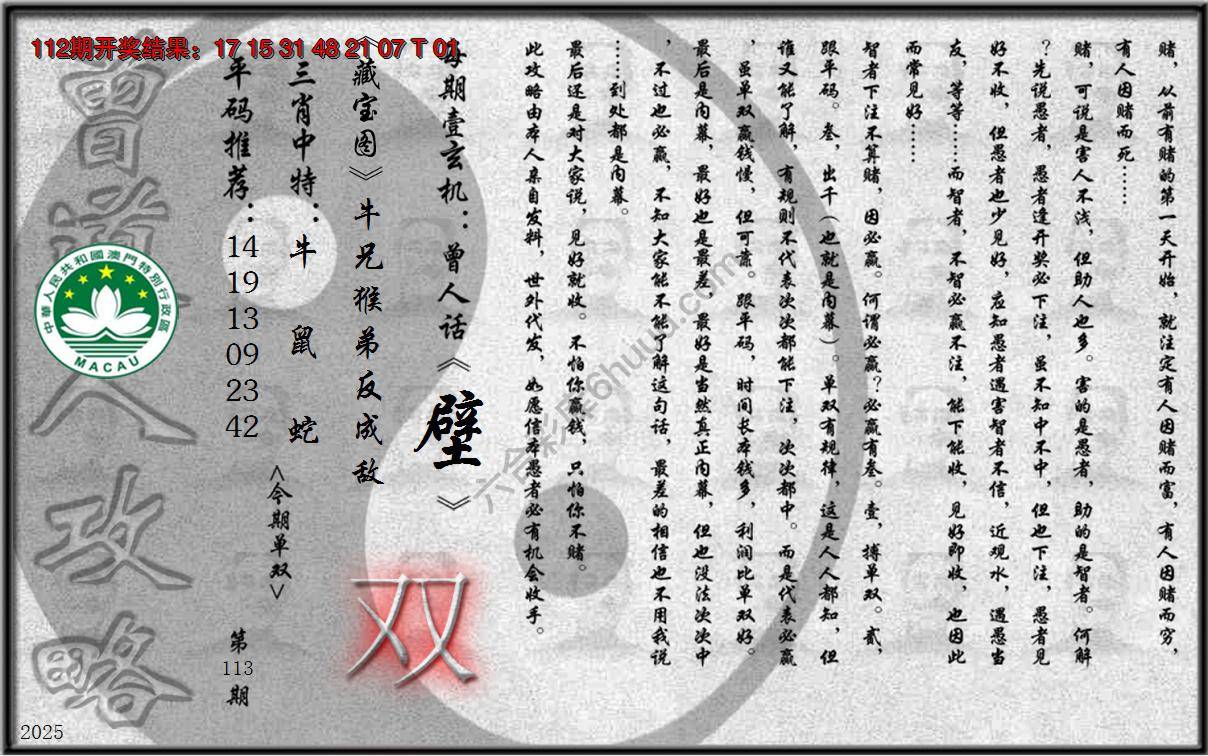 112期开奖结果：17 15 31 48 21 07 T 01
赌，从前有赌的第一天开始，就注定有人因赌而富，有人因赌而穷，
有人因赌而死……
赌，可说是害人不浅，但助人也多。害的是愚者，助的是智者。何解
？先说愚者，愚者逢开奖必下注，虽不知中不中，但也下注，愚者见
好不收，但愚者也少见好，应知愚者遇害智者不信，近观水，遇愚当
友，等等……而智者，不智必赢不注，能下能收，见好即收，也因此
而常见好……
智者下注不算赌，因必赢。何谓必赢？必赢有叁。壹，搏单双。贰，
跟平码。叁，出千（也就是内幕）。单双有规律，这是人人都知，但
谁又能了解，有规则不代表次次都能下注，次次都中。而是代表必赢
，虽单双赢钱慢，但可靠。跟平码，时间长本钱多，利润比单双好。
最后是内幕，最好也是最差，最好是当然真正内幕，但也没法次次中
，不过也必赢，不知大家能不能了解这句话，最差的相信也不用我说
……到处都是内幕。
最后还是对大家说，见好就收。不怕你赢钱，只怕你不赌。
此攻略由本人亲自发料，世外代发，如愿信本愚者必有机会收手。
每期壹玄机：曾人话《壁》
《藏宝图》牛兄猴弟反成敌
三肖中特：牛 鼠 蛇
平码推荐：14 19 13 09 23 42
<今期单双>
双
第113期
曾道人攻略
中華人民共和國澳門特別行政區
MACAU
2025